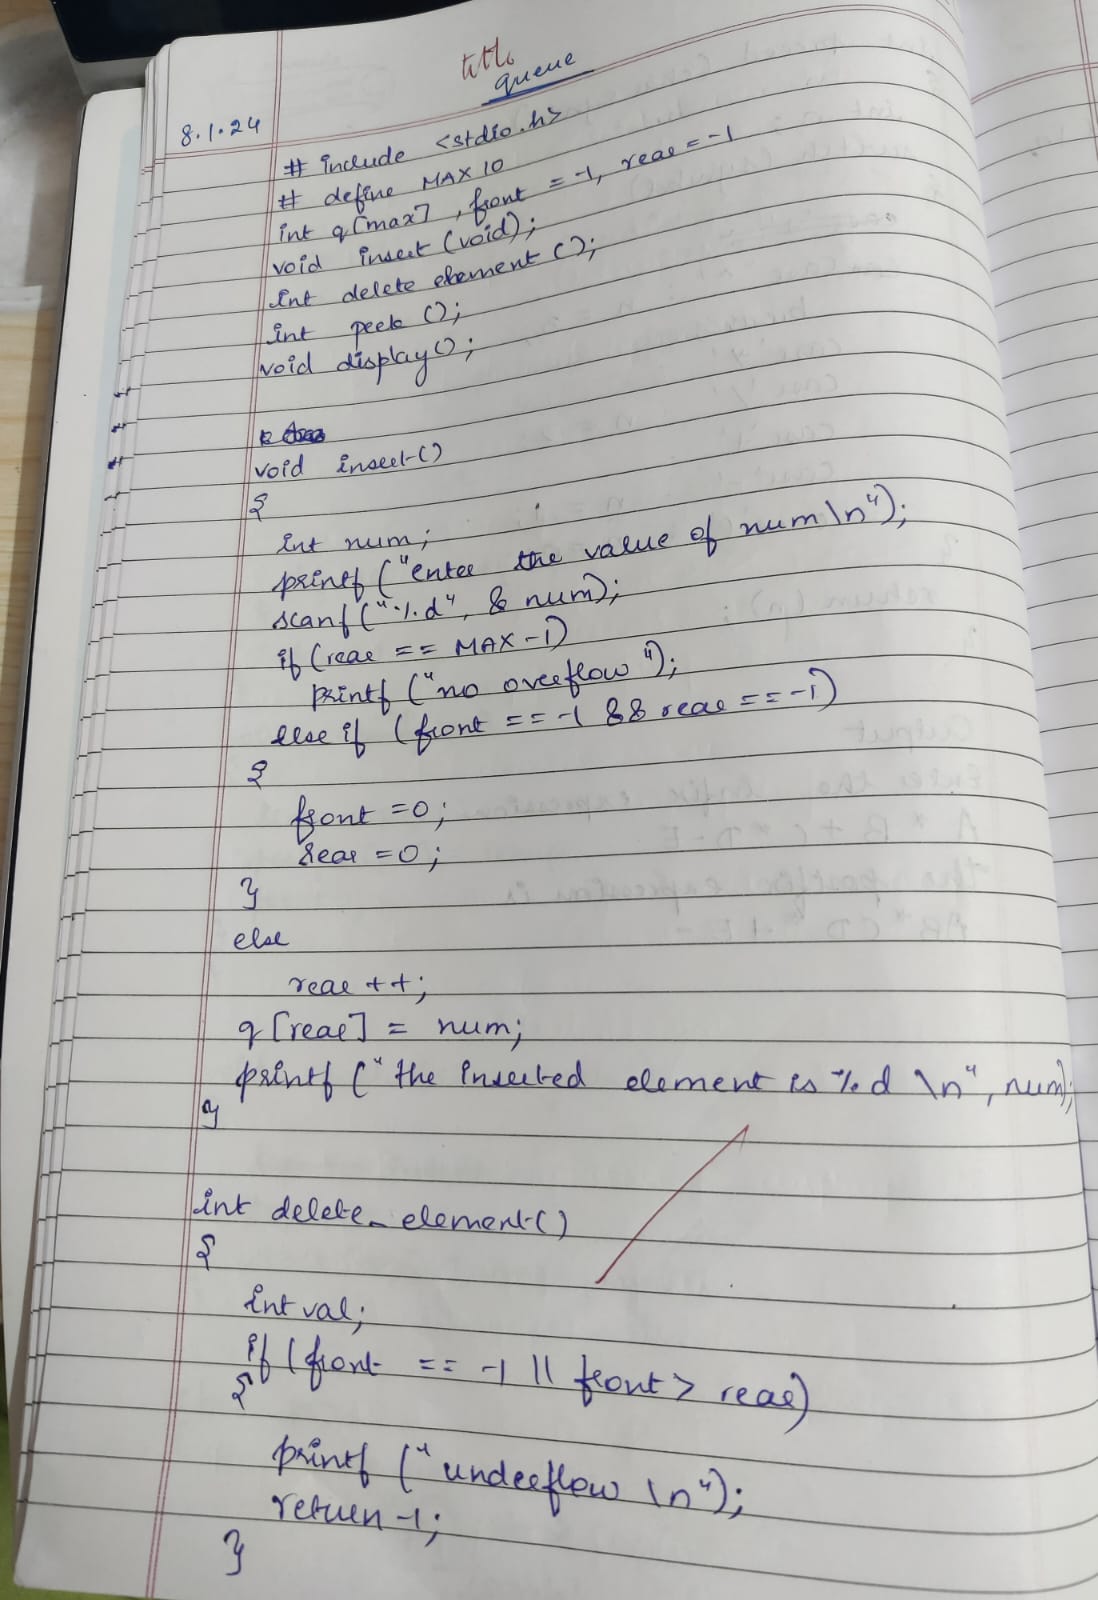 title
queue
8.1.24
# include <stdio.h>
# define MAX 10
int q[max], front = -1, rear = -1
void insert (void);
int delete element ();
int peek ();
void display();
void insert()
{
int num;
printf ("enter the value of num \n");
scanf ("%d", & num);
if (rear == MAX -1)
printf ("no overflow");
else if (front == -1 && rear == -1)
{
front =0;
rear =0;
}
else
rear ++;
q [rear] = num;
printf ("the inserted element is %d \n", num);
}
int delete_element()
{
int val;
if (front == -1 || front > rear)
{
printf ("underflow \n");
return -1;
}